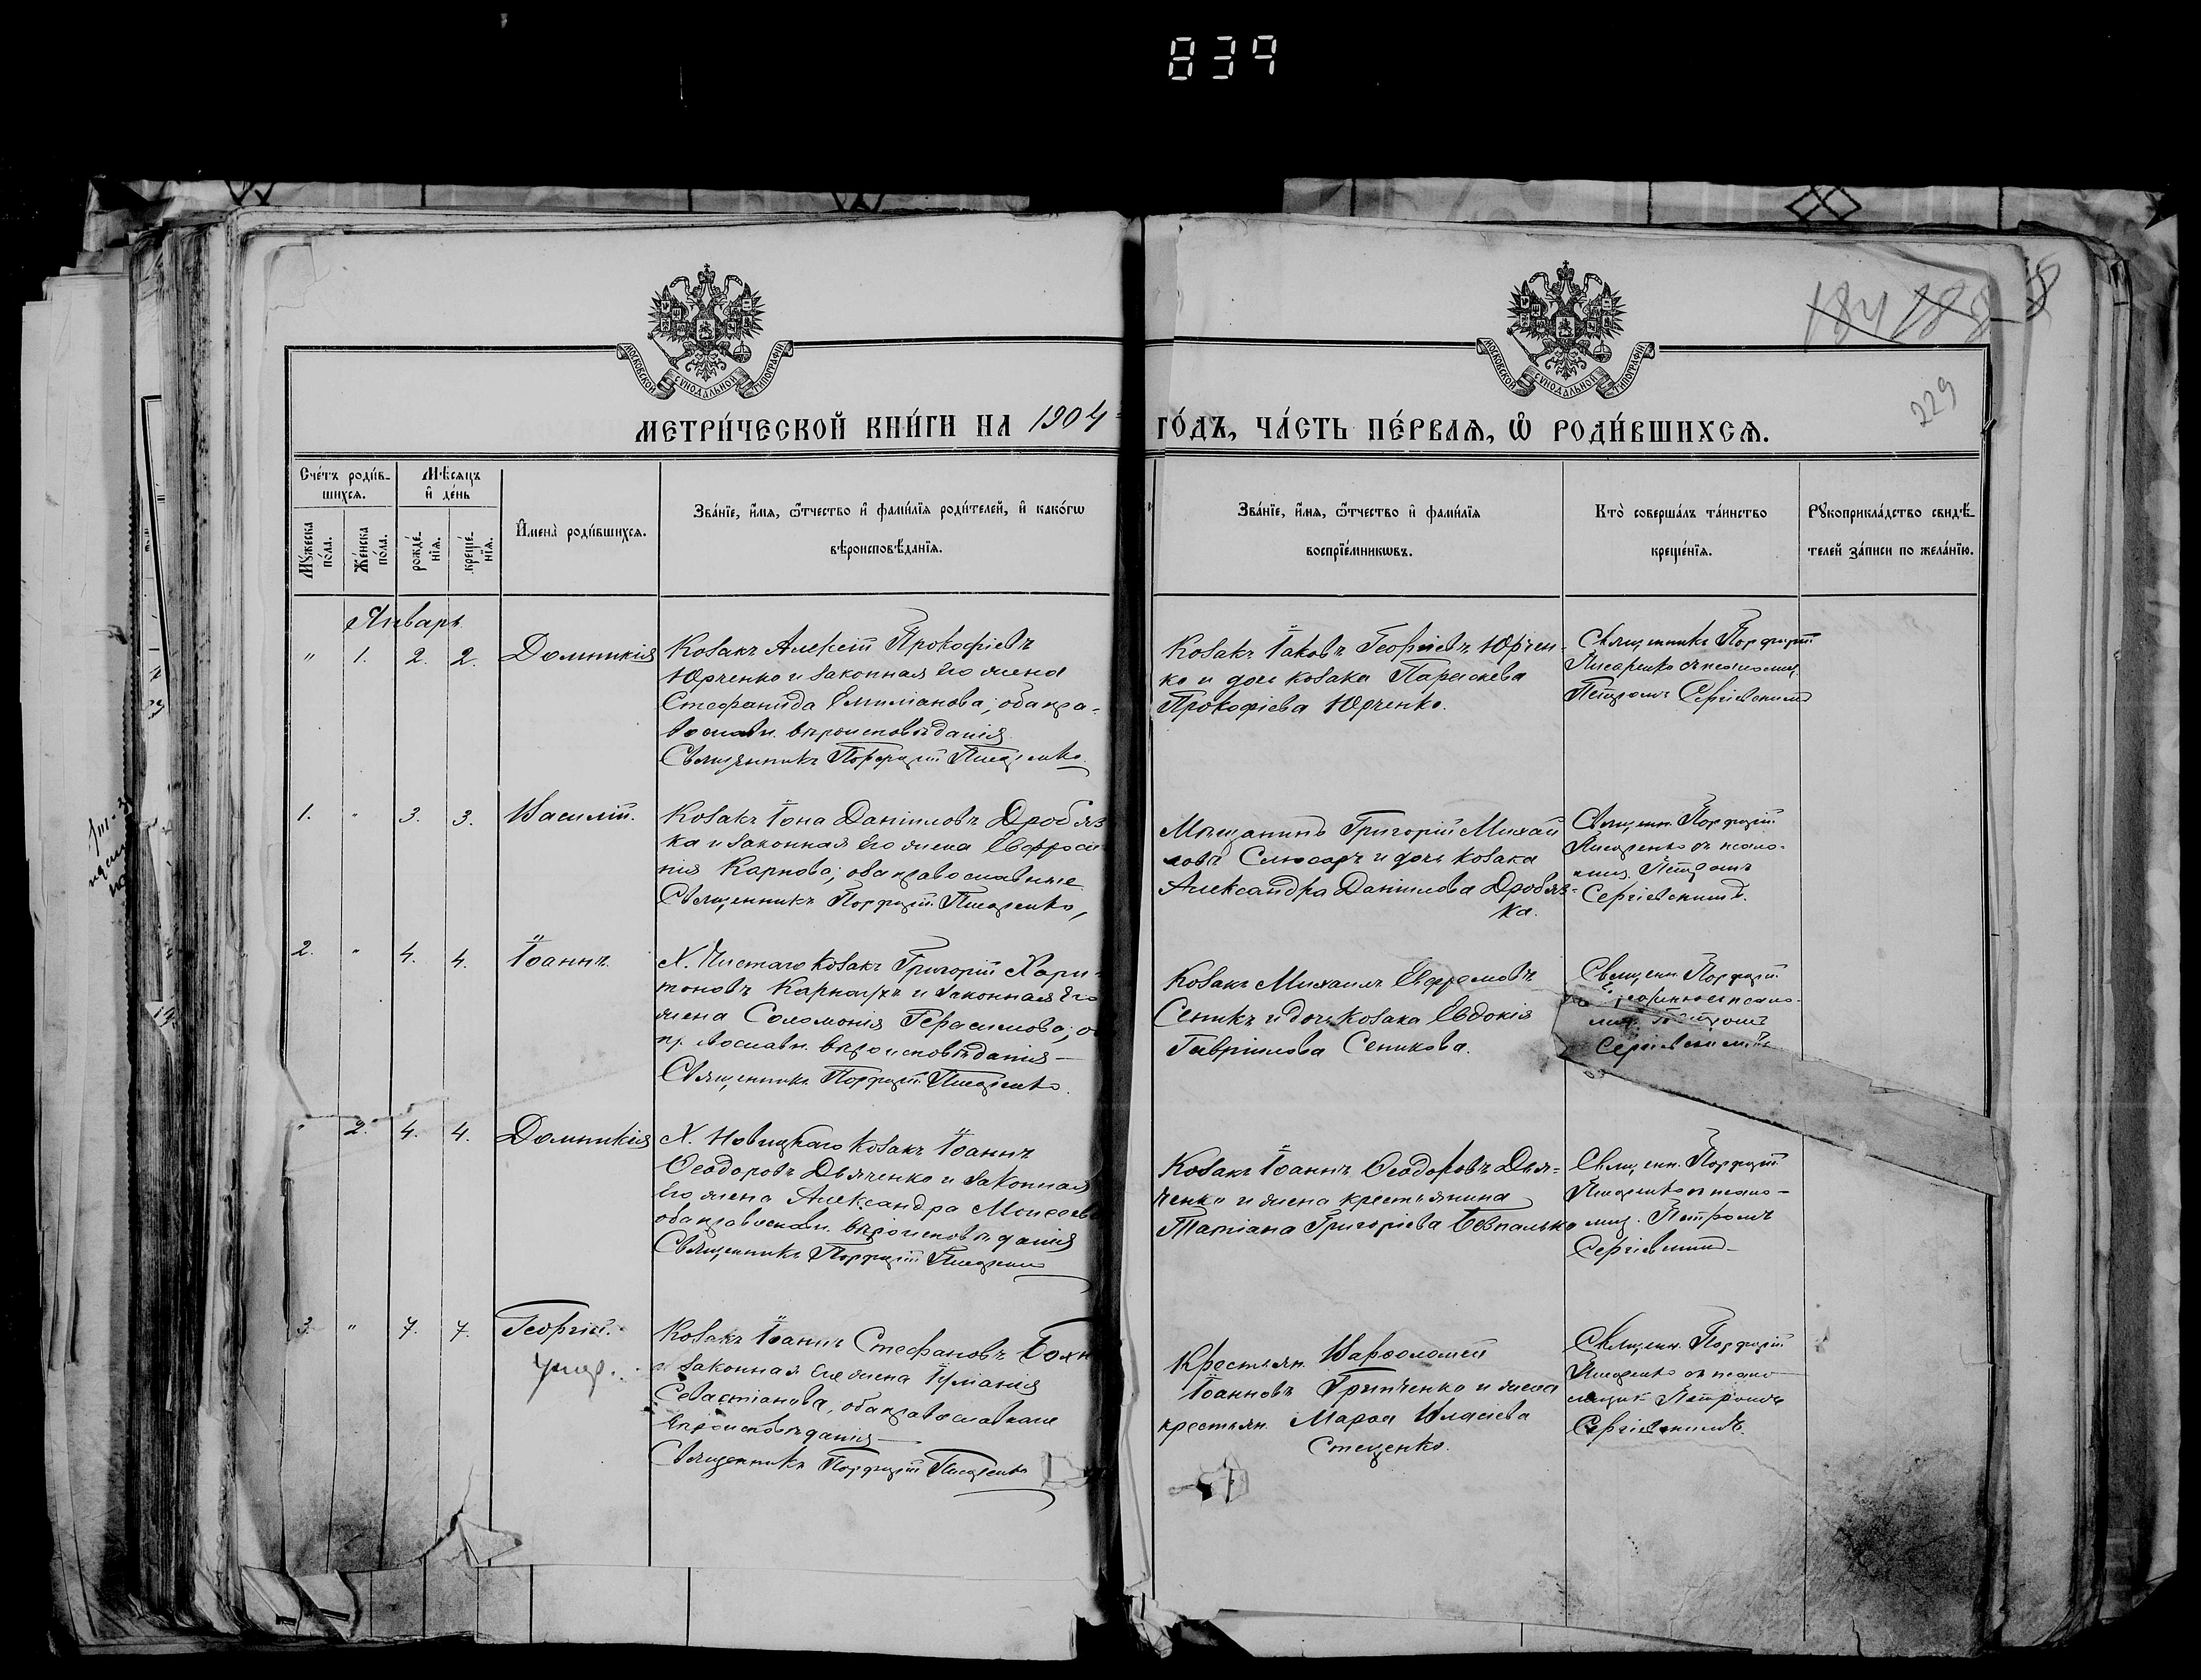 839
184 188
229
МОСКОВСКОЙ СѴНОДАЛЬНОЙ ТИПОГРАФІИ
МОСКОВСКОЙ СѴНОДАЛЬНОЙ ТИПОГРАФІИ
МЕТРИ́ЧЕСКОЙ КНИ́ГИ НА 1904 ГО́ДЪ, ЧА́СТЬ ПЕ́РВАѦ, Ѡ҆ РОДИ́ВШИХСѦ.
Сче́тъ роди́в-
шихсѧ.
Мѣ́сѧцъ
и҆ де́нь
Мꙋ́жеска
по́ла.
Же́нска
по́ла.
рожде́-
нїѧ.
креще́-
нїѧ.
И҆мена̀ роди́вшихсѧ.
Зва́нїе, и҆́мѧ, ѻ҆́тчество и҆ фами́лїѧ роди́телей, и҆ како́гѡ
вѣроисповѣ́данїѧ.
Зва́нїе, и҆́мѧ, ѻ҆́тчество и҆ фами́лїѧ
воспрїе́мникѡвъ.
Кто̀ соверша́лъ та́инство
креще́нїѧ.
Рꙋкоприкла́дство свидѣ́-
телей за́писи по жела́нїю.
Январь
" 1. 2. 2. Домникія
Козакъ Алексій Прокофіевъ
Юрченко и законная его жена
Стефанида Емиліанова; оба пра-
вославн. вѣроисповѣданія
Священникъ Порфирій Писаренко
Козакъ Іаковъ Георгіевъ Юрчен-
ко и дочь козака Параскева
Прокофіева Юрченко.
Священникъ Порфирій
Писаренко съ псаломщ.
Петромъ Сергіевскимъ
1. " 3. 3. Василій.
Козакъ Іона Даніиловъ Дробяз
ка и законная его жена Евфроси
нія Карпова; оба православные
Священникъ Порфирій Писаренко
Мѣщанинъ Григорій Михаи
ловъ Слюсаръ и дочь козака
Александра Даніилова Дробяз-
ка.
Священ. Порфирій
Писаренко съ псало-
мщ. Петромъ
Сергіевскимъ.
2. " 4. 4. Іоаннъ.
Х. Чистаго козакъ Григорій Хари-
тоновъ Карнаухъ и законная его
жена Соломонія Герасимова; о
православн. вѣроисповѣданія —
Священникъ Порфирій Писаренко.
Козакъ Михаилъ Евфремовъ
Сеникъ и дочь козака Евдокія
Гавріилова Сеникова.
Священ. Порфирій
псало-
мщ. Петромъ
Сергіевскимъ
" 2. 4. 4. Домникія
Х. Новицкаго козакъ Іоаннъ
Ѳеодоровъ Дьяченко и законная
его жена Александра Моисеев
оба православн. вѣроисповѣданія
Священникъ Порфирій Писаренко
Козакъ Іоаннъ Ѳеодоровъ Дья-
ченко и жена крестьянина
Татіана Григоріева Безпалько
Священ. Порфирій
Писаренко съ псало-
мщ. Петромъ
Сергіевскимъ
3. " 7. 7. Георгій.
умер.
Козакъ Іоаннъ Стефановъ Бохн
и законная его жена Іуліанія
Севастіанова, оба православнаго
вѣроисповѣданія —
Священникъ Порфирій Писаренко
Крестьян. Варѳоломей
Іоанновъ Грипченко и жена
крестьян. Марѳа Власіева
Стеценко.
Священ. Порфирій
Писаренко съ псало-
мщик. Петромъ
Сергіевскимъ.